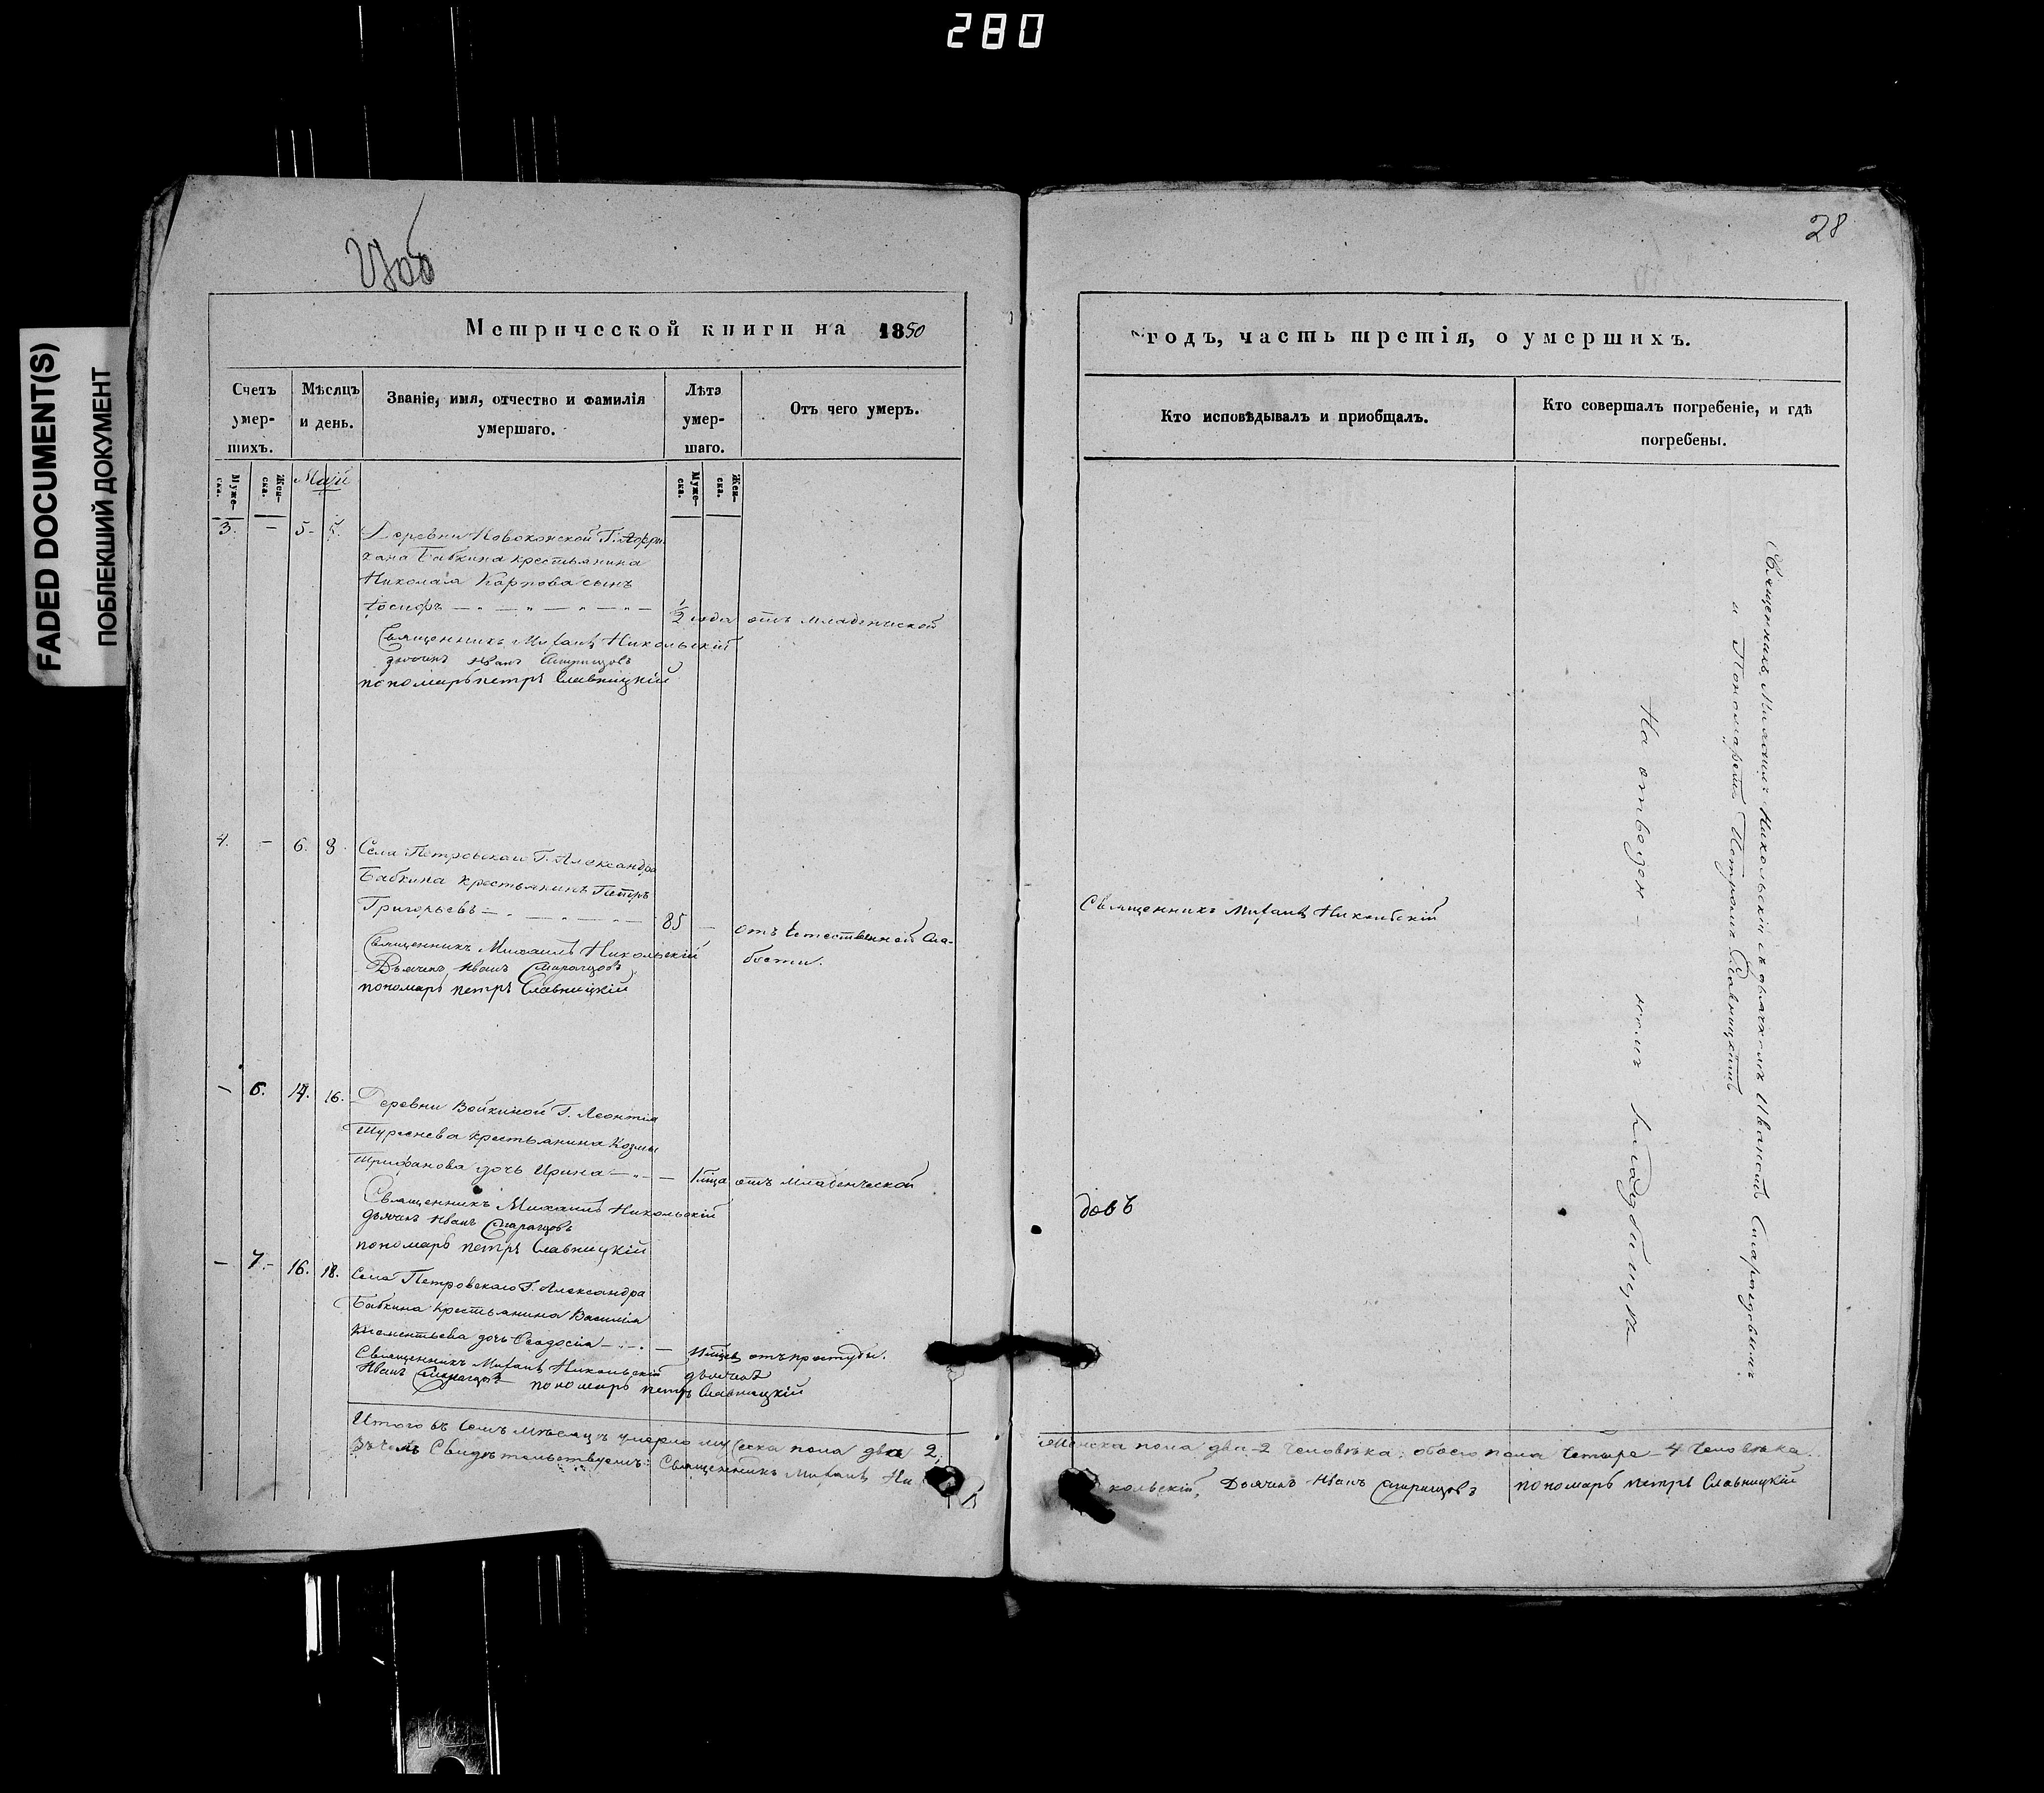 280
FADED DOCUMENT(S)
ПОБЛЕКШИЙ ДОКУМЕНТ
28
Метрической книги на 1850
Счетъ умер-шихъ.
Мѣсяцъ и день.
Званіе, имя, отчество и фамилія умершаго.
Лѣта умер-шаго.
Отъ чего умеръ.
Муже-ска.
Жен-ска.
Май
Муже-ска.
Жен-ска.
3. — 5. 5. Деревни Г.
Бабкина крестьянина
Николая Карпова сынъ
Іосифъ — 1/2 года отъ младенческой
Священникъ Михаилъ Никольскій
дьячекъ Иванъ
пономарь петръ Славницкій
4. — 6. 8. Села Петровскаго Г. Александра
Бабкина крестьянинъ Петръ
Григорьевъ — 85 — отъ Естественной сла-
бости.
Священникъ Михаилъ Никольскій
Дьячекъ Иванъ
пономарь петръ Славницкій
— 6. 14. 16. Деревни Войкиной Г. Леонтія
крестьянина Козмы
Трифанова дочь Ирина — отъ младенческой
Священникъ Михаилъ Никольскій
дьячекъ Иванъ
пономарь петръ Славницкій
— 7. — 16. 18. Села Петровскаго Г. Александра
Бабкина крестьянина Василія
Климентьева дочь Феодосія — отъ простуды.
Священникъ Михаилъ Никольскій дьячекъ
Иванъ пономарь петръ Славницкій
Итого въ семъ мѣсяцѣ умерло мужеска пола два 2.
Въ чемъ Свидѣтельствуемъ: Священникъ Михаилъ Ни
годъ, часть третія, о умершихъ.
Кто исповѣдывалъ и приобщалъ.
Кто совершалъ погребеніе, и гдѣ погребены.
Священникъ Михаилъ Никольскій
довъ
Священникъ Михаилъ Никольскій съ дьячкомъ Иваномъ
и Пономаремъ Петромъ Славницкимъ
На отведен- номъ кладбищѣ
Женска пола два 2 человѣка: обоего пола четыре — 4 человѣка.
кольскій, Дьячекъ Иванъ пономарь петръ Славницкій